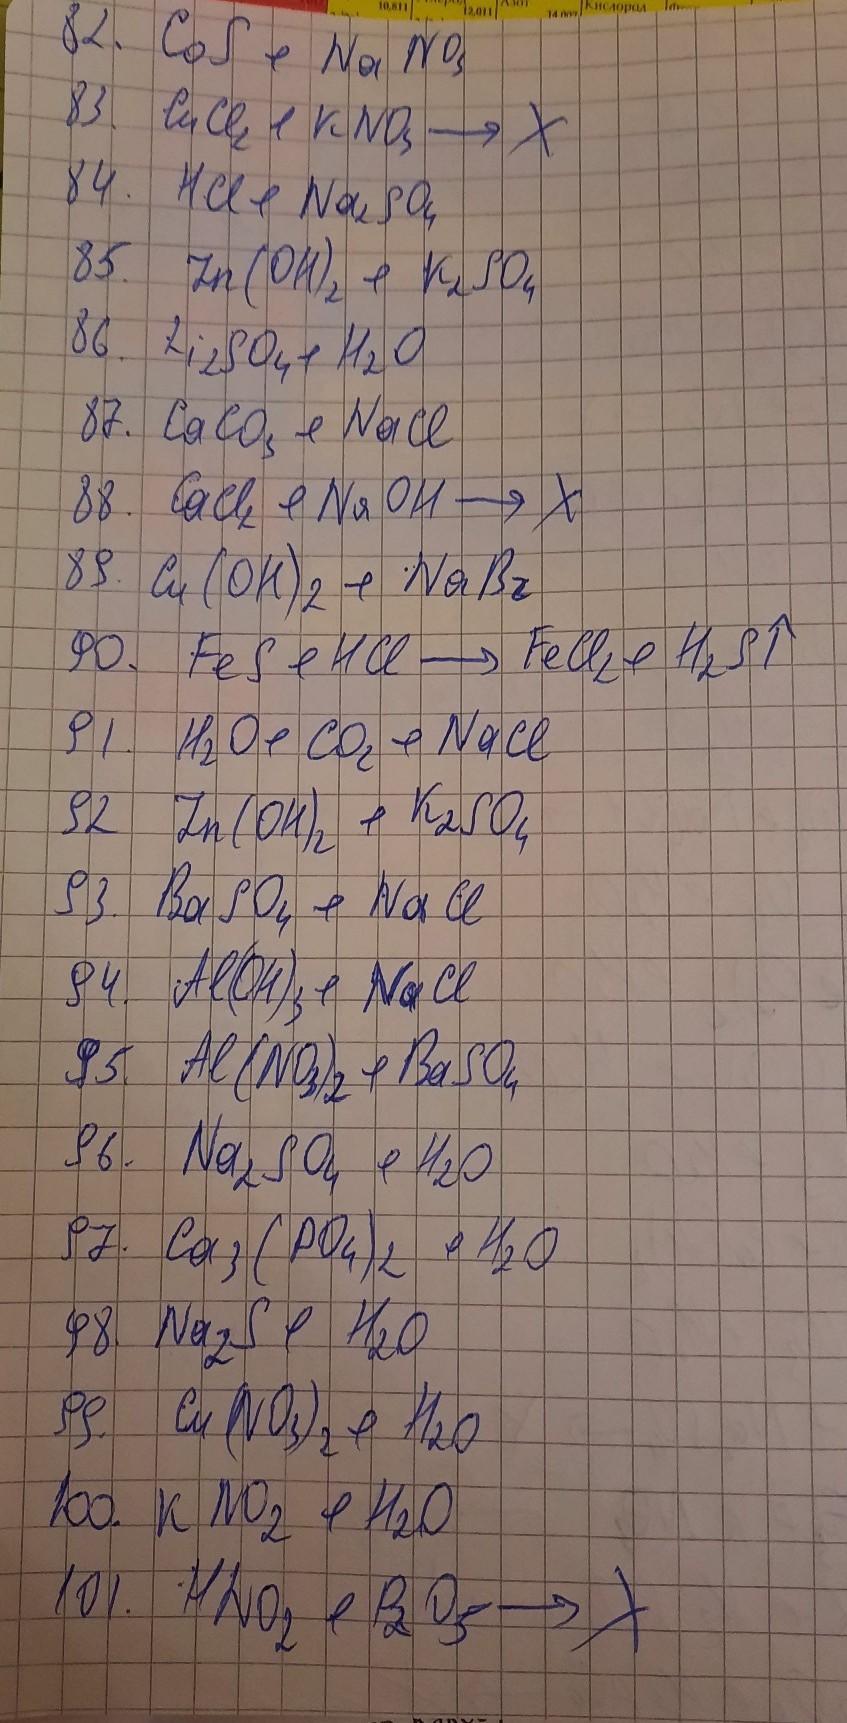 10,811
12,011
Азот
14,007
Кислород
82. CoS + NaNO3
83. CuCl2 + KNO3 → X
84. HCl + Na2SO4
85. Zn(OH)2 + K2SO4
86. Li2SO4 + H2O
87. CaCO3 + NaCl
88. CaCl2 + NaOH → X
89. Cu(OH)2 + NaBr
90. FeS + HCl → FeCl2 + H2S↑
91. H2O + CO2 + NaCl
92 Zn(OH)2 + K2SO4
93. BaSO4 + NaCl
94. Al(OH)3 + NaCl
95. Al(NO3)2 + BaSO4
96. Na2SO4 + H2O
97. Ca3(PO4)2 + H2O
98. Na2S + H2O
99. Cu(NO3)2 + H2O
100. KNO2 + H2O
101. HNO2 + P2O5 → X